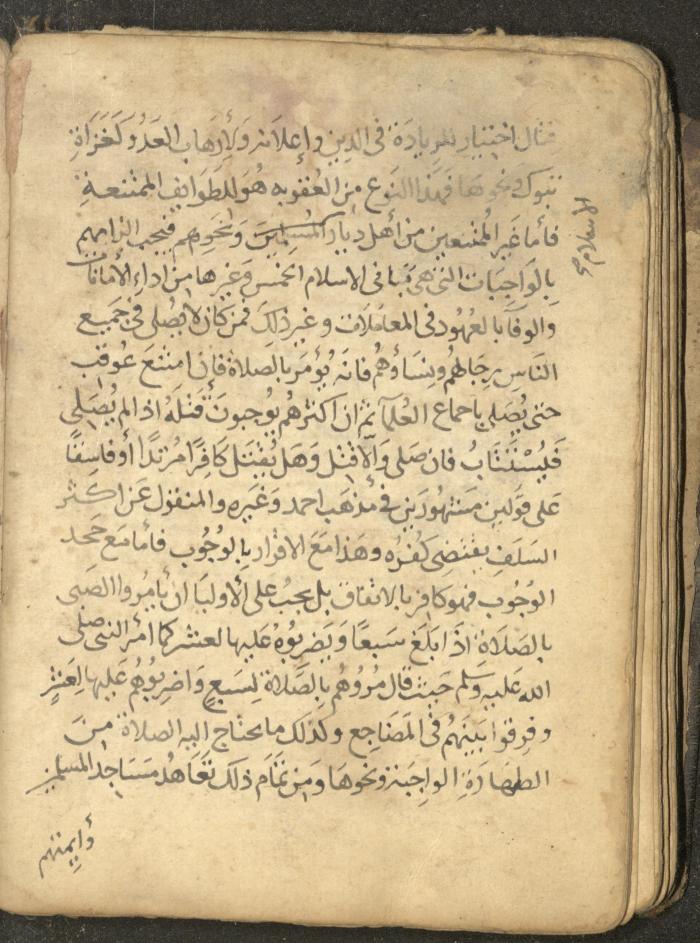 قتال اختيار للزيادة فى الدين وإعلائه ولإرهاب العدو كغزاة
تبوك ونحوها فهذا النوع من العقوبه هو للطوايف الممتنعة
فأما غير الممتنعين من أهل ديار المسلمين ونحوهم فيجب الزامهم
بالواجبات التى هى مبانى الاسلام الخمس وغيرها من اداء الأمانات
والوفآ بالعهود فى المعاملات وغير ذلك فمن كان لا يصلى فى جميع
الناس رجالهم ونساؤهم فانه يؤمر بالصلاة فان امتنع عوقب
حتى يصلى باجماع العلمآ ثم ان اكثرهم يوجبون قتله اذا لم يصلى
فيستتاب فان صلى والا قتل وهل يقتل كافرا مرتدا أو فاسقا
على قولين مشهورين فى مذهب احمد وغيره والمنقول عن اكثر
السلف يقتضى كفره وهذا مع الاقرار بالوجوب فأما مع جحد
الوجوب فهو كافر بالاتفاق بل يجب على الأوليا ان يأمروا الصبى
بالصلاة اذا بلغ سبعا ويضربوه عليها لعشر كما أمر النبى صلى
الله عليه وسلم حيث قال مروهم بالصلاة لسبع واضربوهم عليها لعشر
وفرقوا بينهم فى المضاجع وكذلك ما يحتاج اليه الصلاة من
الطهارة الواجبة ونحوها ومن تمام ذلك تعاهد مساجد المسلمين
وأيمتهم
الاسلام صح